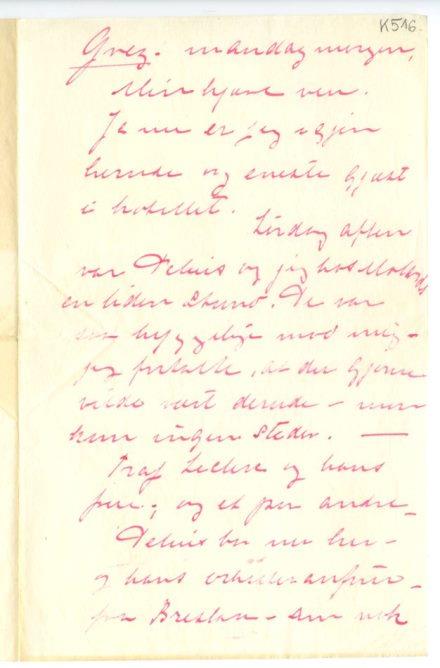 K516.
Grez. mandag morgen,
Min kjære ven.
Ja nu er jeg igjen
herude og eneste gjæst
i hotellet.
Lördag aften
var Delius og jeg hos Molards
en liden stund. De var
saa hyggelige mod mig –
jeg fortalte, at du gjerne
vilde vært derude – men
kom ingen steder. —
Traf Leclerc og hans
frue; og et par andre –
Delius bor nu her –
og hans
fra Breslau – som